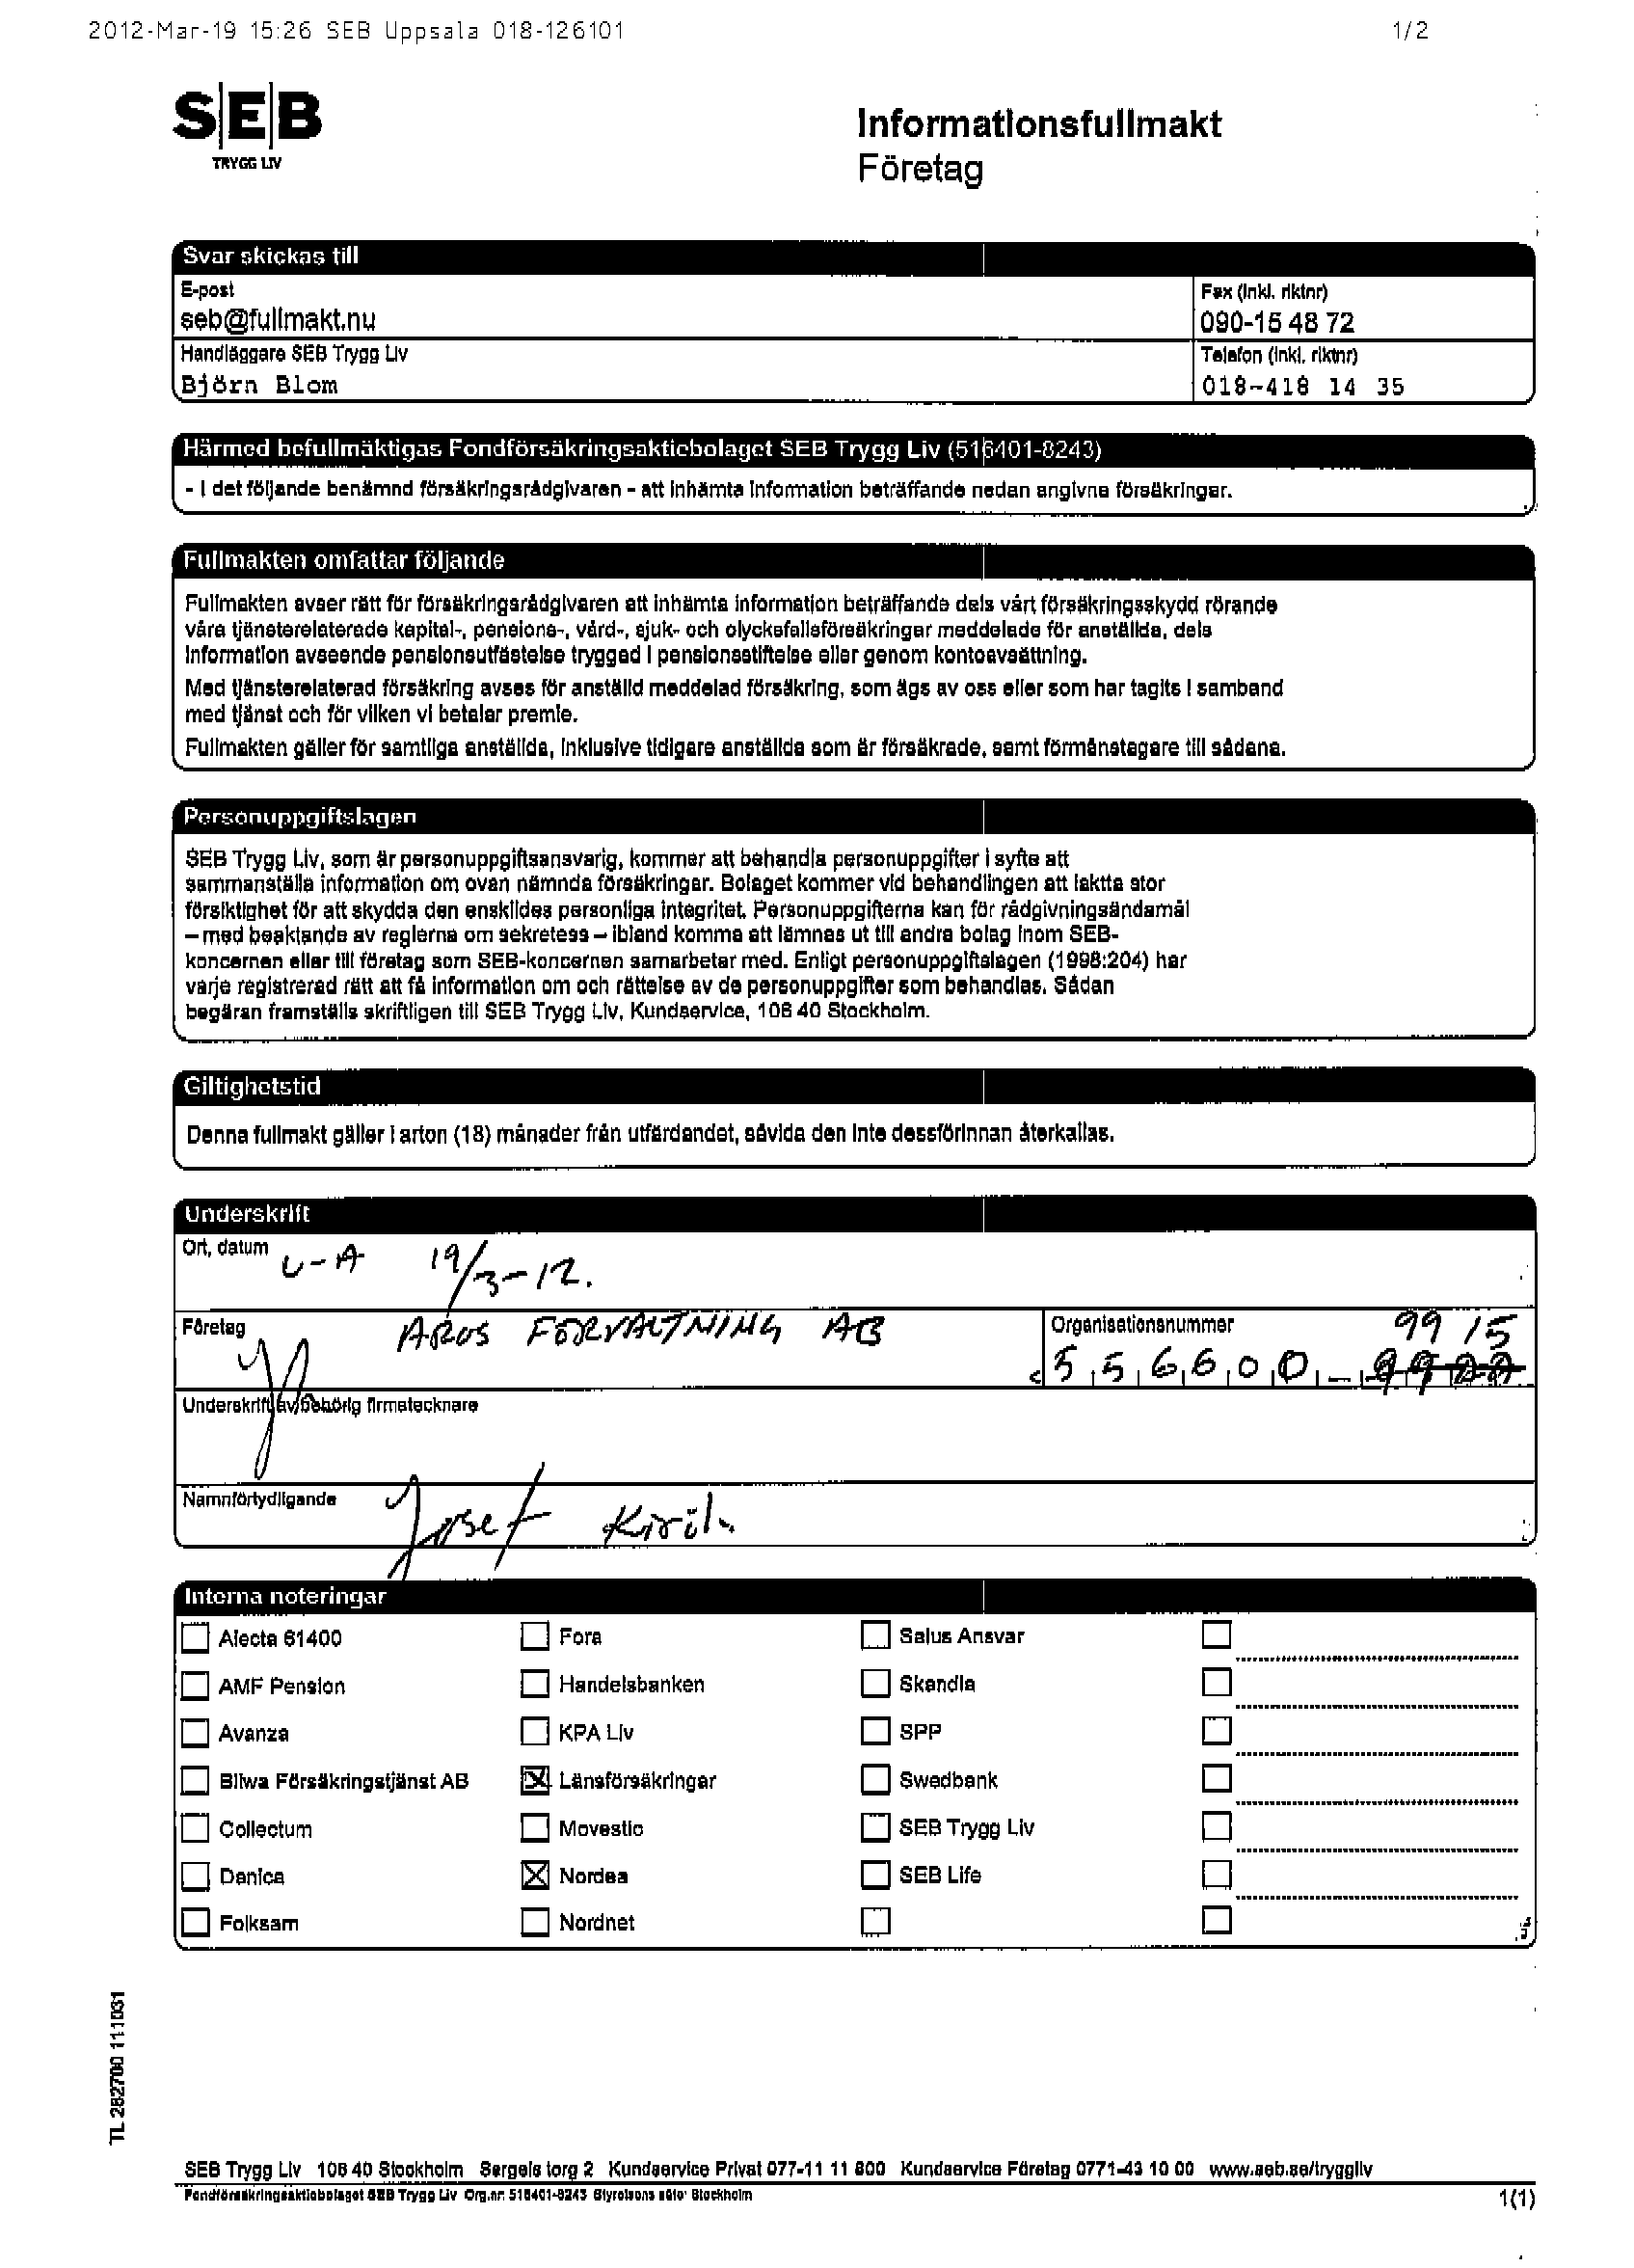 2012-Mar-19 15:26 SEB Uppsala 018-126101 1/2
SEB
TRYGG LIV
Informationsfullmakt
Företag
Svar skickas till
E-post
seb@fullmakt.nu
Fax (inkl. riktnr)
090-15 48 72
Handläggare SEB Trygg Liv
Björn Blom
Telefon (inkl. riktnr)
018-418 14 35
Härmed befullmäktigas Fondförsäkringsaktiebolaget SEB Trygg Liv (516401-8243)
- i det följande benämnd försäkringsrådgivaren - att inhämta information beträffande nedan angivna försäkringar.
Fullmakten omfattar följande
Fullmakten avser rätt för försäkringsrådgivaren att inhämta information beträffande dels vårt försäkringsskydd rörande
våra tjänsterelaterade kapital-, pensions-, vård-, sjuk- och olycksfallsförsäkringar meddelade för anställda, dels
information avseende pensionsutfästelse tryggad i pensionsstiftelse eller genom kontoavsättning.
Med tjänsterelaterad försäkring avses för anställd meddelad försäkring, som ägs av oss eller som har tagits i samband
med tjänst och för vilken vi betalar premie.
Fullmakten gäller för samtliga anställda, inklusive tidigare anställda som är försäkrade, samt förmånstagare till sådana.
Personuppgiftslagen
SEB Trygg Liv, som är personuppgiftsansvarig, kommer att behandla personuppgifter i syfte att
sammanställa information om ovan nämnda försäkringar. Bolaget kommer vid behandlingen att iaktta stor
försiktighet för att skydda den enskildes personliga integritet. Personuppgifterna kan för rådgivningsändamål
– med beaktande av reglerna om sekretess – ibland komma att lämnas ut till andra bolag inom SEB-
koncernen eller till företag som SEB-koncernen samarbetar med. Enligt personuppgiftslagen (1998:204) har
varje registrerad rätt att få information om och rättelse av de personuppgifter som behandlas. Sådan
begäran framställs skriftligen till SEB Trygg Liv, Kundservice, 106 40 Stockholm.
Giltighetstid
Denna fullmakt gäller i arton (18) månader från utfärdandet, såvida den inte dessförinnan återkallas.
Underskrift
Ort, datum
U-A 19/3-12.
Företag
AROS FÖRVALTNING AB
Organisationsnummer
99 15
556600-
Underskrift av behörig firmatecknare
Namnförtydligande
Josef
Interna noteringar
Alecta 61400
Fora
Salus Ansvar
AMF Pension
Handelsbanken
Skandia
Avanza
KPA Liv
SPP
Bliwa Försäkringstjänst AB
Länsförsäkringar
Swedbank
Collectum
Movestic
SEB Trygg Liv
Danica
Nordea
SEB Life
Folksam
Nordnet
TL 282700 111031
SEB Trygg Liv 106 40 Stockholm Sergels torg 2 Kundservice Privat 077-11 11 800 Kundservice Företag 0771-43 10 00 www.seb.se/tryggliv
Fondförsäkringsaktiebolaget SEB Trygg Liv Org.nr: 516401-8243 Styrelsens säte: Stockholm
1(1)